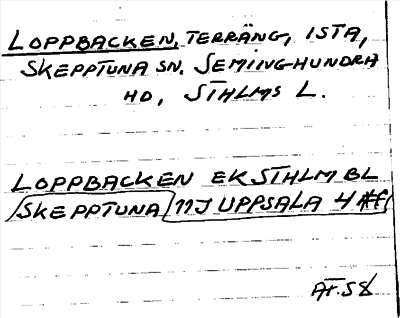 LOPPBACKEN, TERRÄNG, ISTA,
SKEPPTUNA SN. SEMINGHUNDRA
HD, STHLMS L.
LOPPBACKEN EK STHLM BL
SKEPPTUNA 11J UPPSALA 4
ÄT. 58